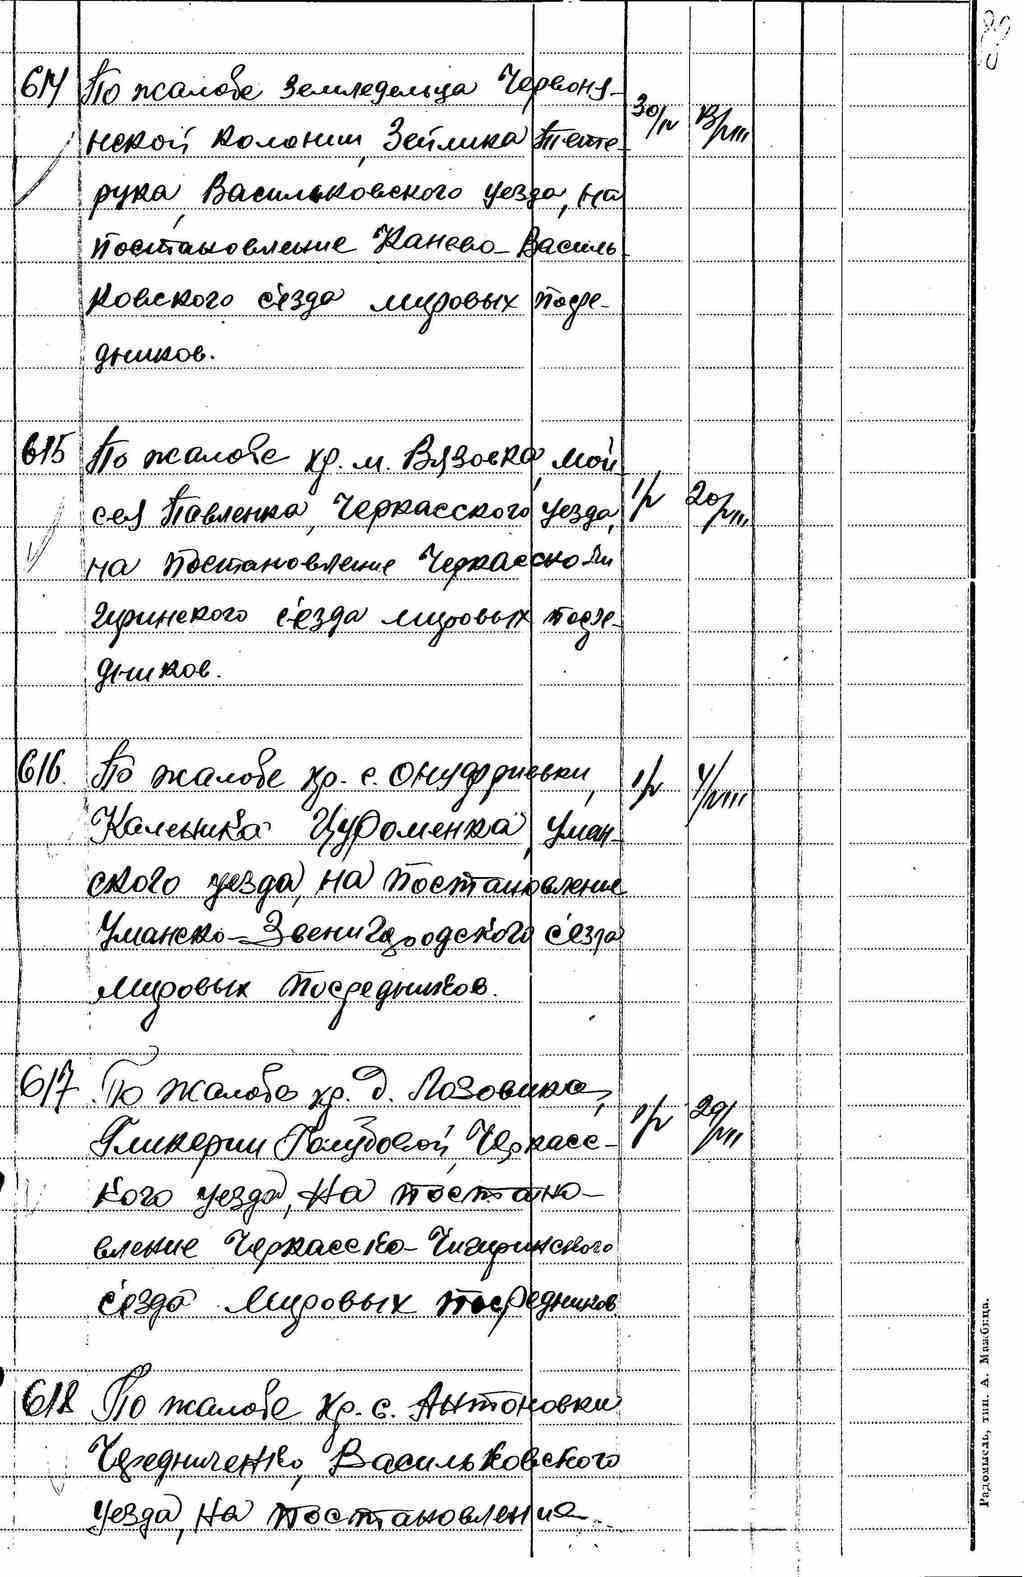 614 По жалобе земледельца Червону-
нской колонии, Зейлика Тете- 30/IV 13/VIII
рука, Васильковского уезда, на
постановление Канево-Василь-
ковского с'езда мировых посре-
дников.
615 По жалобе кр. м. Вязовка, Мой
сея Павленка, Черкасского уезда, 1/V 20/VIII
на постановление Черкасско-Чи
гиринского с'езда мировых посре-
дников.
616. По жалобе кр. с. Онуфриевки,
Каленика Цуроменка, Уман- 1/V 4/VIII
ского уезда, на постановление
Уманско-Звенигородского с'езда
мировых посредников.
617 По жалобе кр. д. Лозовика,
Гликерии Голубовой, Черкасс- 1/V 29/VIII
кого уезда, на постано-
вление Черкасско-Чигиринского
с'езда мировых посредников
618 По жалобе кр. с. Антоновки
Чередниченко, Васильковского
уезда, на постановление
Радомысль, тип. А.